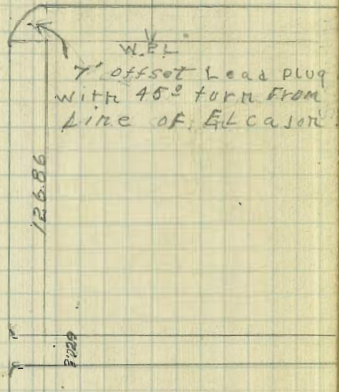 W.P.L.
7' offset Lead plug
with 45° turn From
Line of, ELcajon
126.86